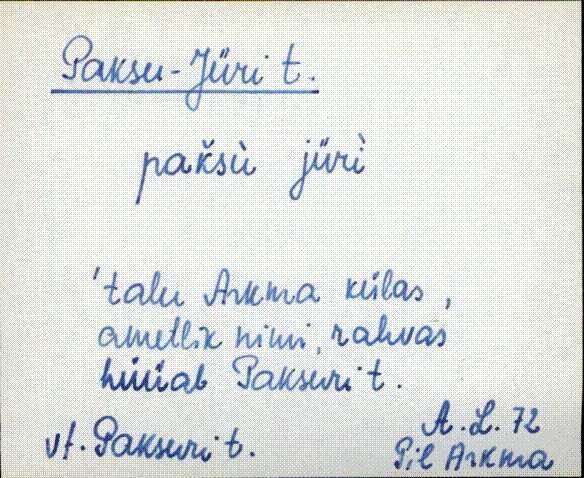 Paksu-Jüri t.
pakšù jürì
'talu Arkma külas,
ametlik nimi, rahvas
hüüab Paksuri t.
vt. Paksuri t.
A. L. 72
Pil Arkma